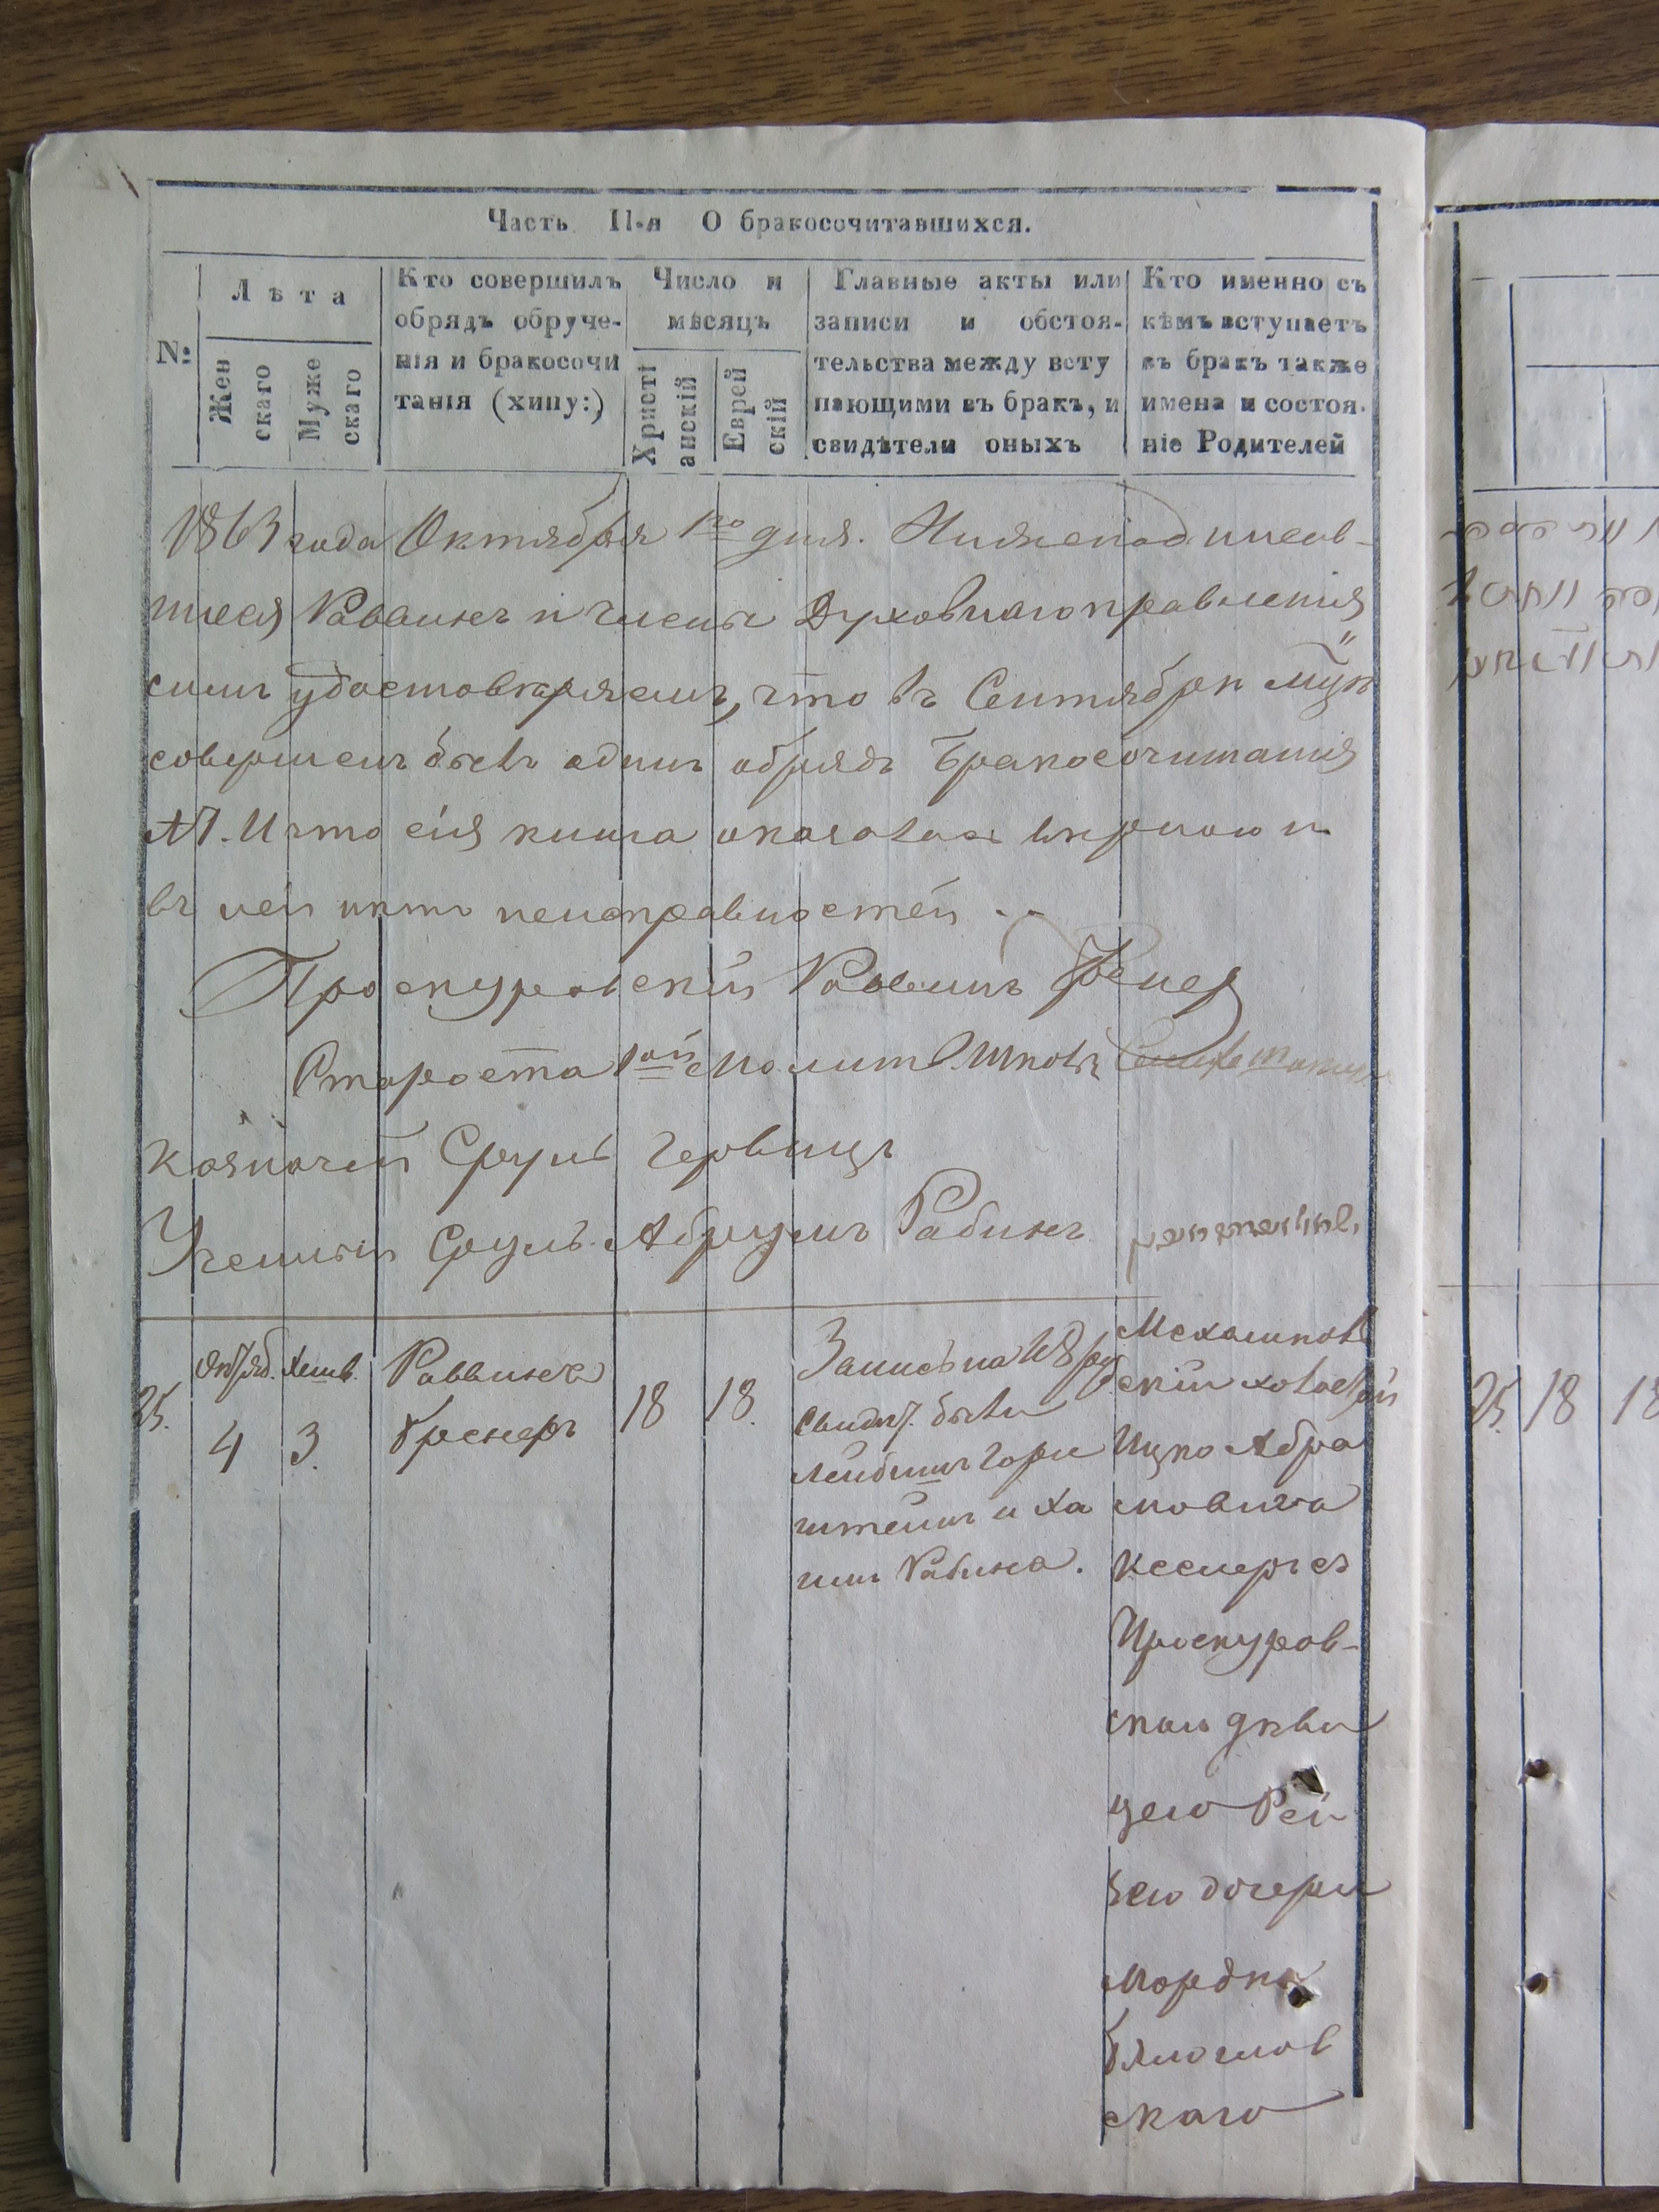 Часть II-я О бракосочитавшихся.
№
Лѣта
Женскаго
Мужескаго
Кто совершилъ
обрядъ обруче-
нія и бракосочи
танія (хипу:)
Число и
мѣсяцъ
Христіанскій
Еврейскій
Главные акты или
записи и обстоя-
тельства между всту
пающими въ бракъ, и
свидѣтели оныхъ
Кто именно съ
кѣмъ вступаетъ
въ бракъ также
имена и состоя-
ніе Родителей
1863 года Октября 1го дня. Нижеподписав-
шіеся Раввинъ и члены Духовнаго правленія
симъ удостовѣряемъ, что въ Сентябрѣ м-цѣ
совершенъ былъ одинъ обрядъ бракосочитанія
№1. И что сія книга оказалась вѣрною и
въ ней нѣтъ неисправностей
Проскуровскій Раввинъ
Староста 1ой Молит. Школы
Казначей Сруль Гервицъ
Ученый Сруль Абрумъ Рабинъ
25.
Октяб.
4
Хешв.
3.
Раввинъ
Гренеръ
18
18.
Запись на 48 руб
свидѣт. были
Лейбишъ Горн
штейнъ и Ха
имъ Рабинъ.
скій холостой
Ицко Абра
мовичъ
Кесперъ съ
Проскуров-
ской дѣви
цею Рей
зею дочери
Мордко
скаго
25. 18 18